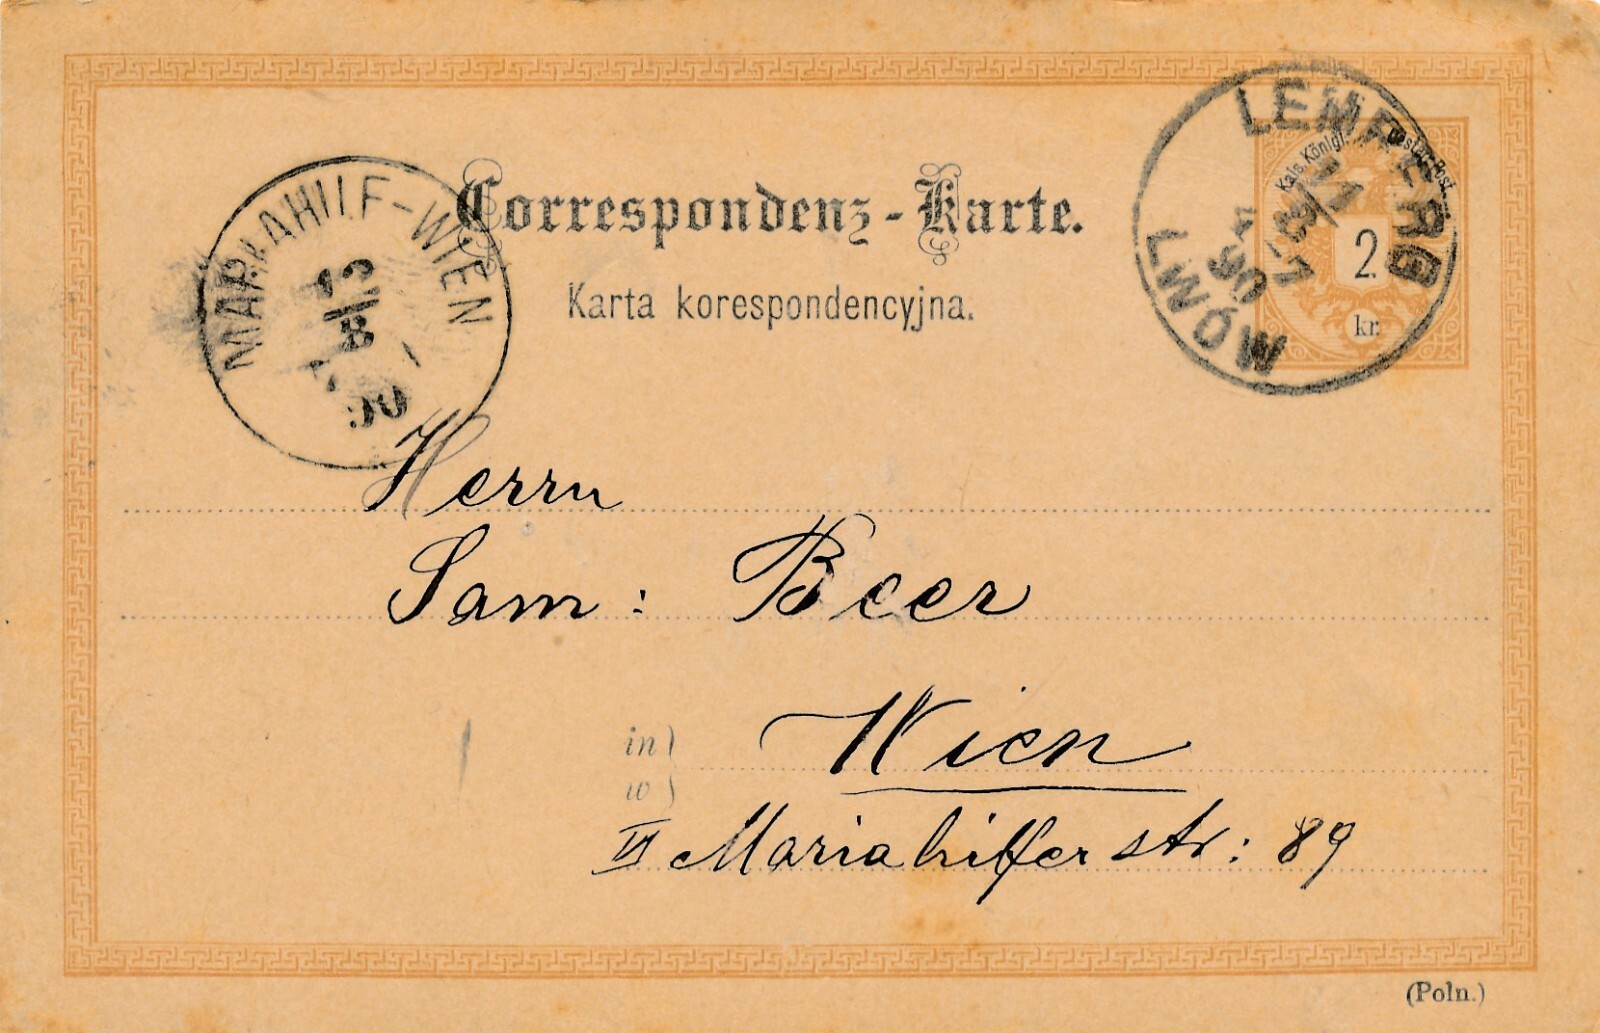 Correspondenz-Karte.
Karta korespondencyjna.
LEMBERG
LWÓW 1
11/8
7
90
Kais. Königl. Oesterr. Post
2
kr.
MARIAHILF-WIEN
13
8
90
Herrn
Sam: Beer
in)
Wien
w)
VI Mariahilferstr: 89
(Poln.)